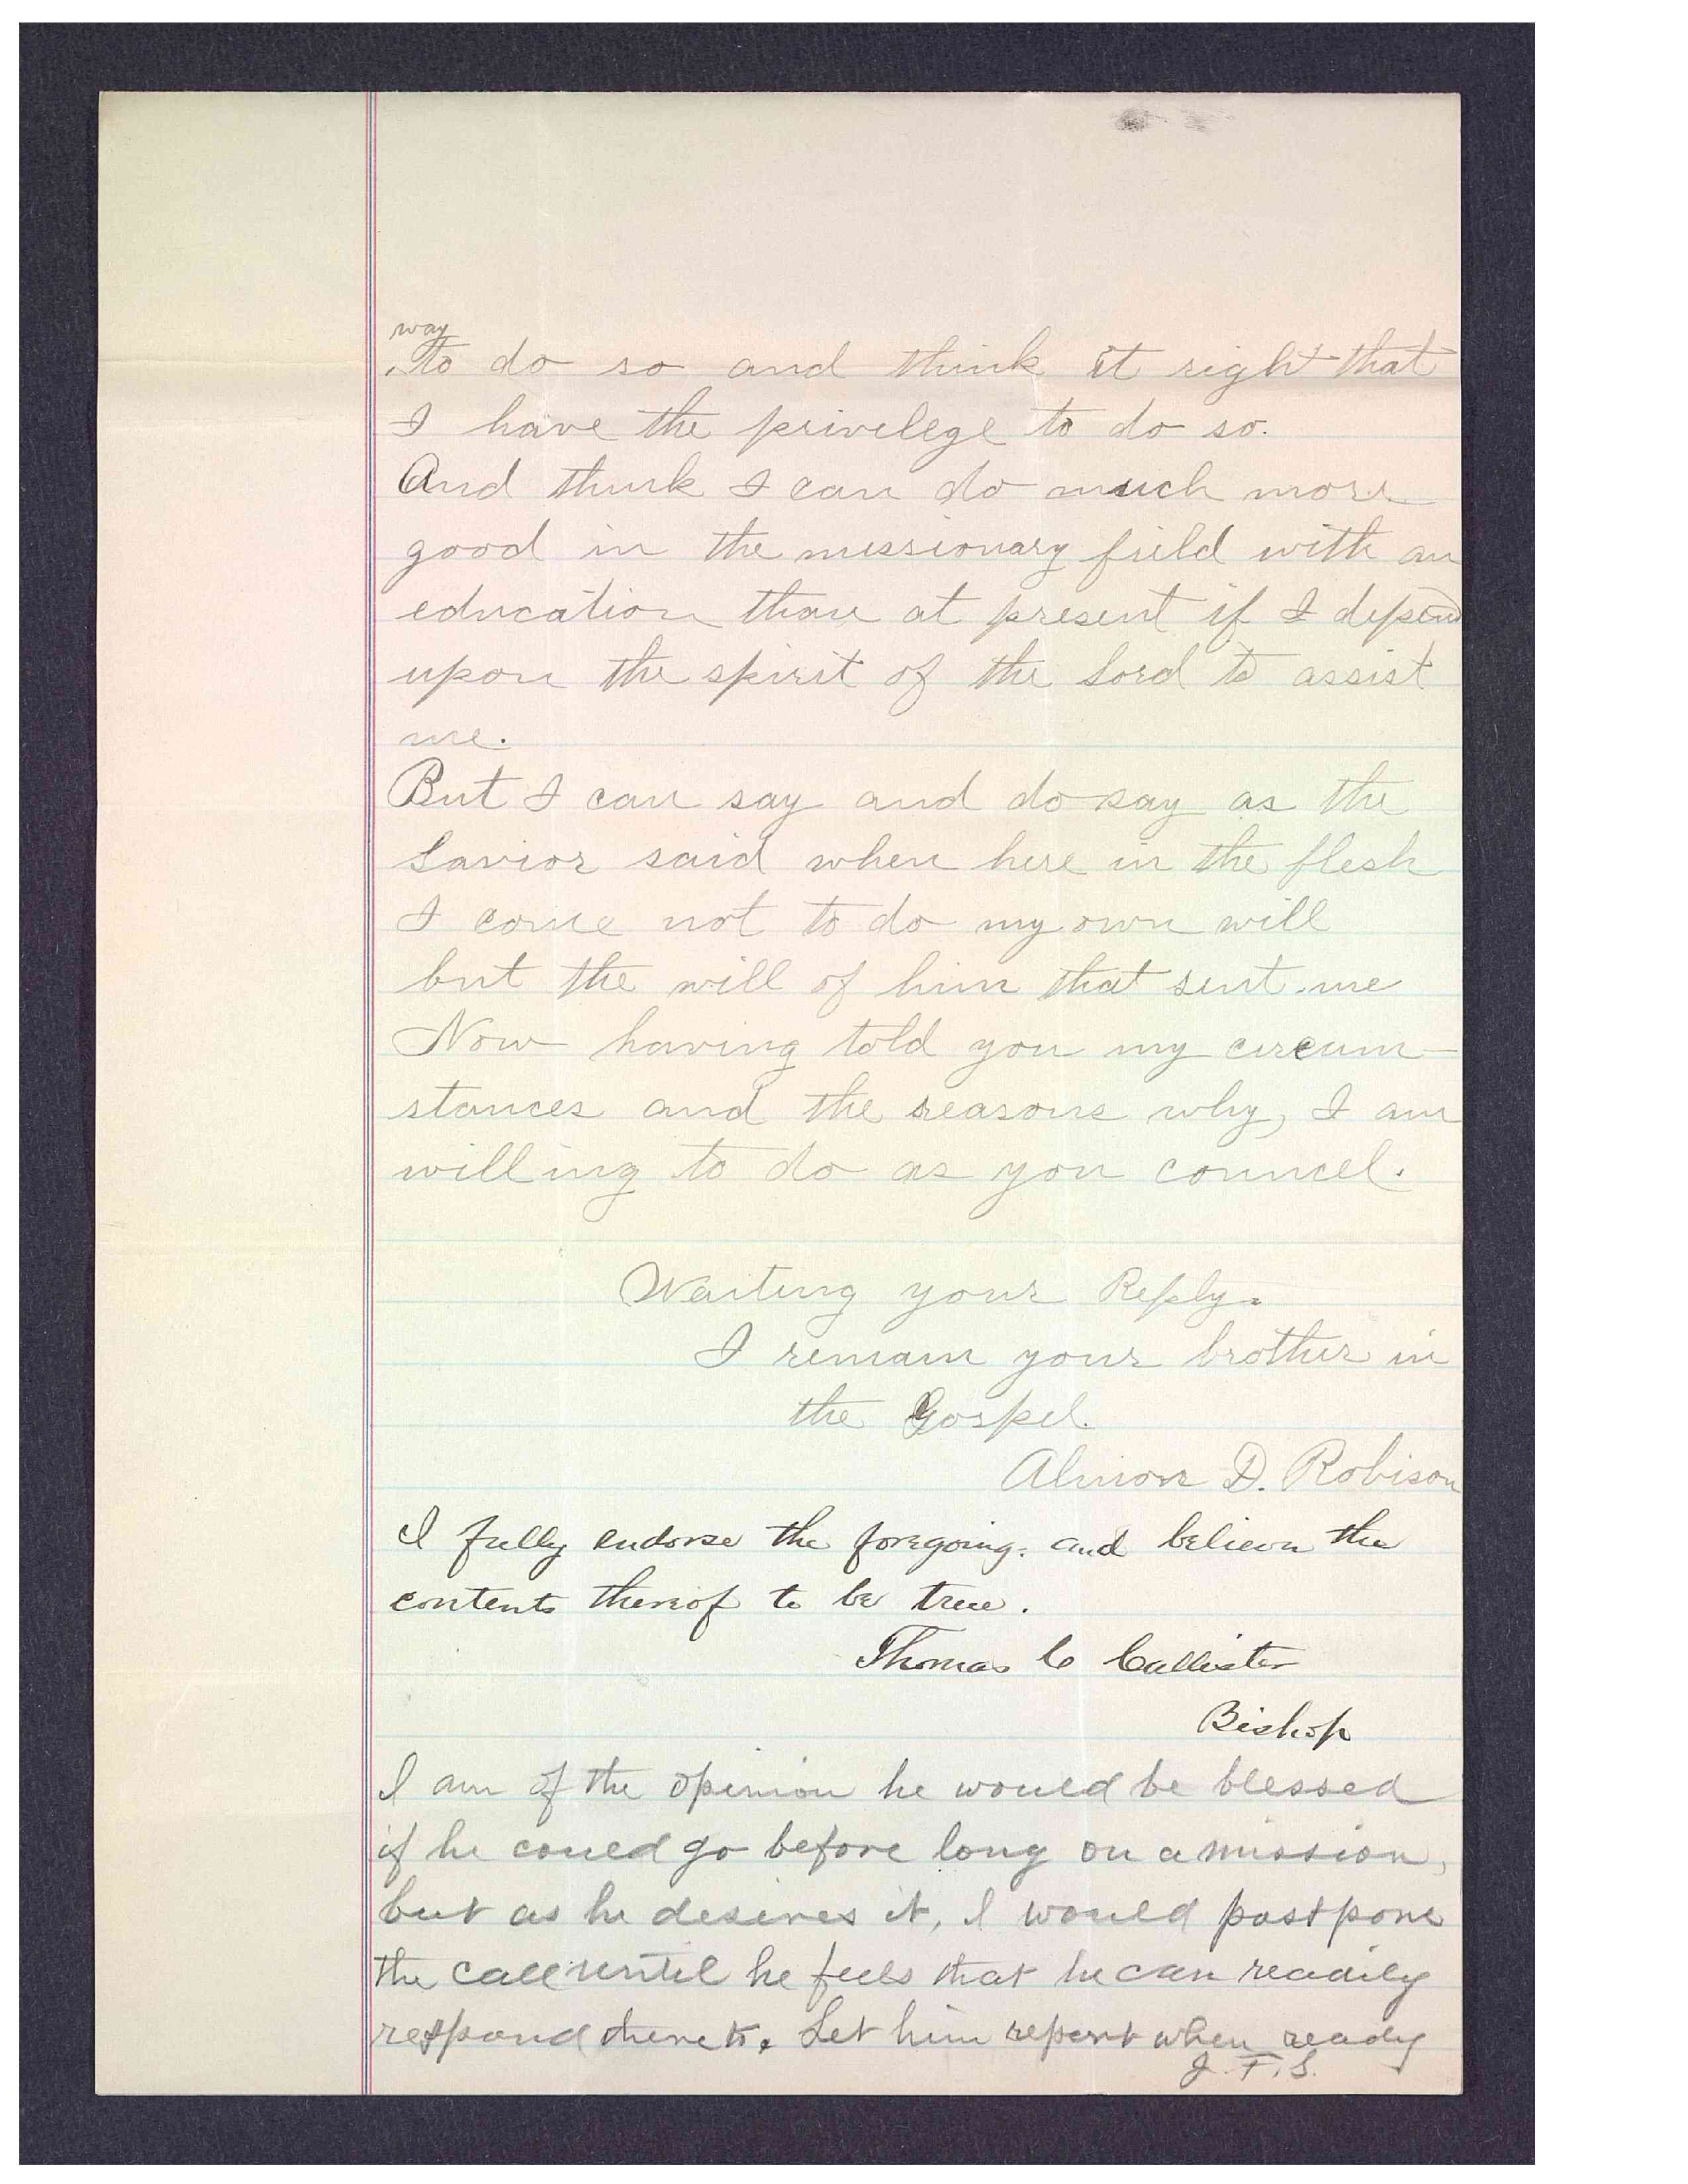 way
‸to do so and think it right that
I have the privelege to do so.
And think I can do much more
good in the missionary field with an
education than at present if I depend
upon the spirit of the Lord to assist
me.
But I can say and do say as the
Savior said when here in the flesh
I come not to do my own will
but the will of him that sent me
Now having told you my circum-
stances and the reasons why, I am
willing to do as you councel.
Waiting your Reply.
I remain your brother in
the Gospel.
Almon D. Robison
I fully endorse the foregoing. and believe the
contents thereof to be true.
Thomas C Callister
Bishop
I am of the opinion he would be blessed
if he could go before long on a mission,
but as he desires it, I would postpone
the call until he feels that he can readily
respond thereto. Let him report when ready
J. F. S.